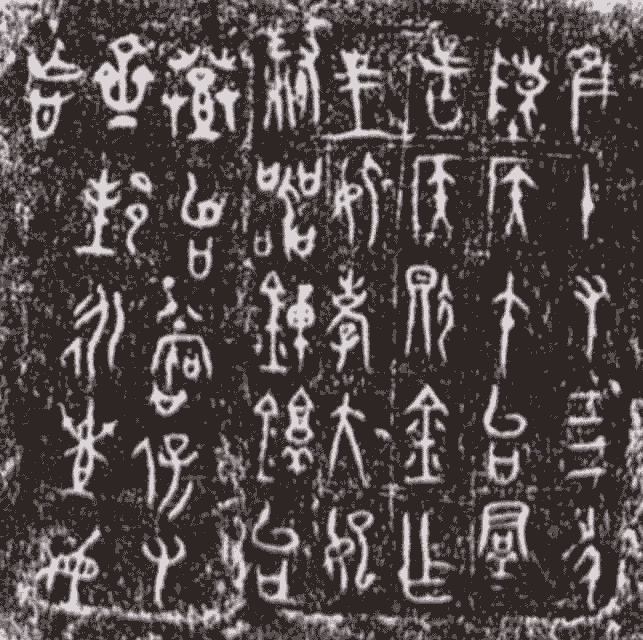 隹十又四年
陳侯午台群
者侯獻金乍
皇妣孝大妃
祭器𨥏敦台
登台嘗保又
齊邦永世毋
忘